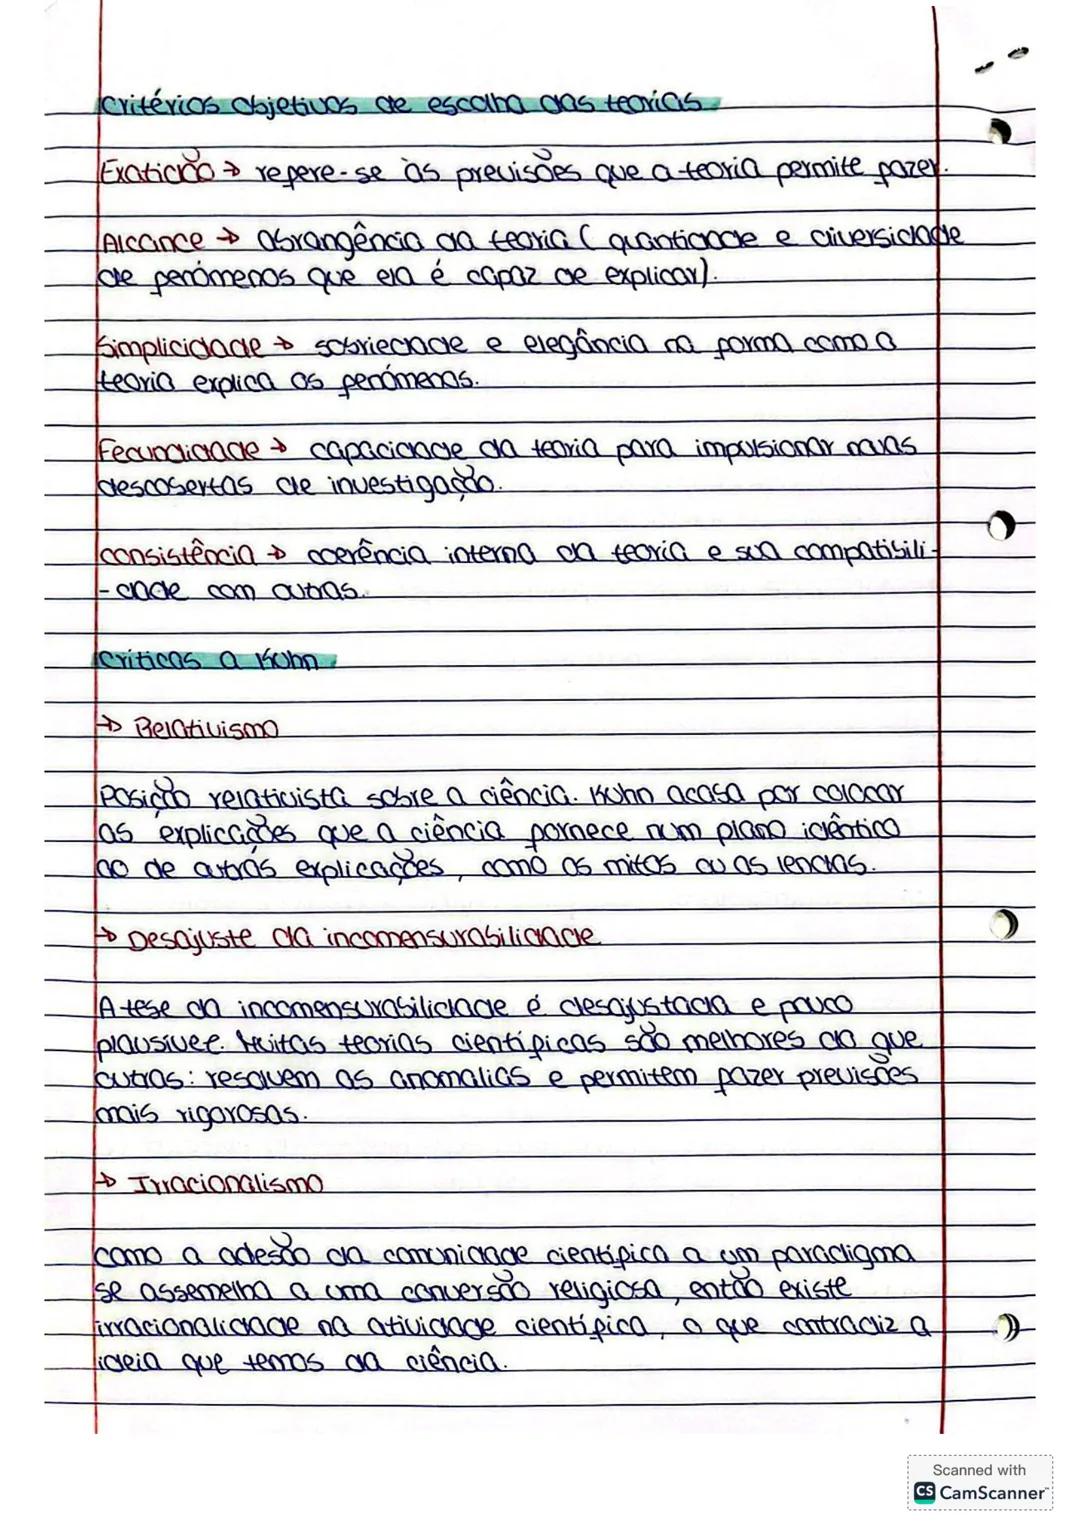 Critérios objetivos de escolha das teorias
Exatidão → refere-se às previsões que a teoria permite fazer.
Alcance → abrangência da teoria ( quantidade e diversidade
de fenómenos que ela é capaz de explicar).
Simplicidade → sobriedade e elegância na forma como a
teoria explica os fenómenos.
Fecundidade → capacidade da teoria para impulsionar novas
descobertas de investigação.
Consistência → coerência interna da teoria e sua compatibili-
-dade com outras.
Críticas a Kuhn
→ Relativismo
Posição relativista sobre a ciência. Kuhn acaba por colocar
as explicações que a ciência fornece num plano idêntico
ao de outras explicações, como os mitos ou as lendas.
→ Desajuste da incomensurabilidade
A tese da incomensurabilidade é desajustada e pouco
plausível. Muitas teorias científicas são melhores do que
outras: resolvem as anomalias e permitem fazer previsões
mais rigorosas.
→ Irracionalismo
Como a adesão da comunidade científica a um paradigma
se assemelha a uma conversão religiosa, então existe
irracionalidade na atividade científica, o que contradiz a
ideia que temos da ciência.
Scanned with
CS CamScanner